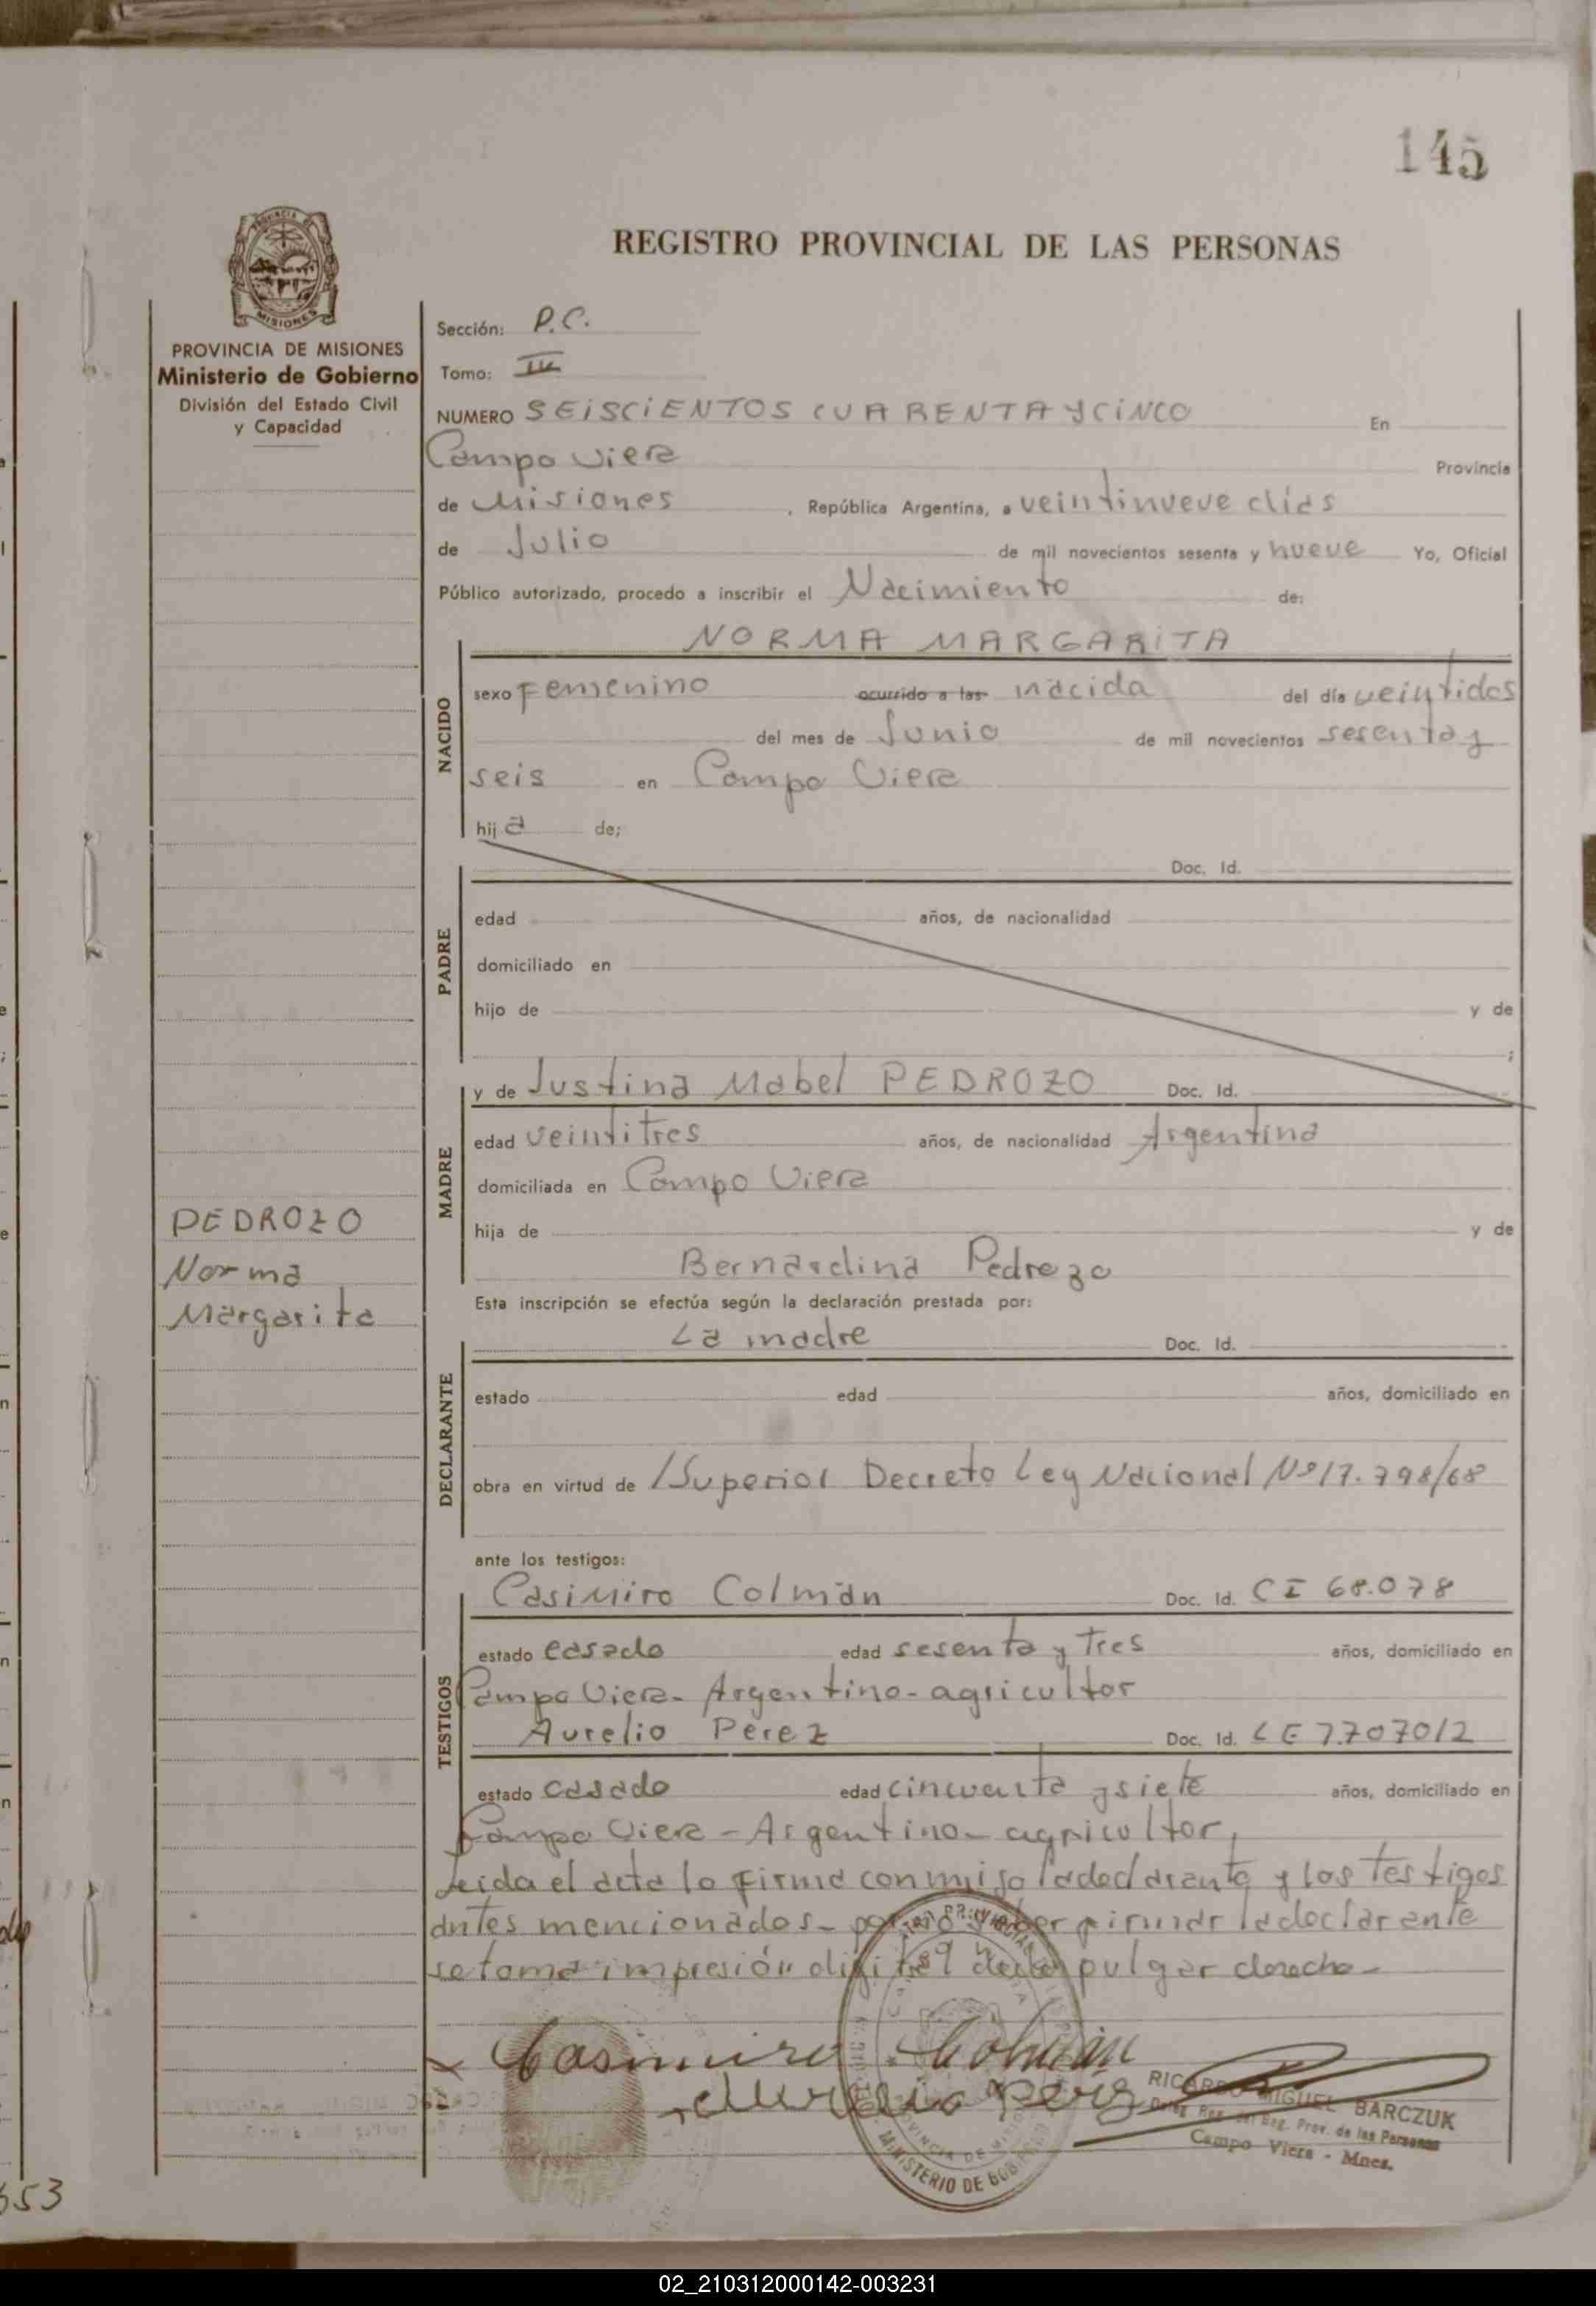 145
PROVINCIA DE
MISIONES
REGISTRO PROVINCIAL DE LAS PERSONAS
PROVINCIA DE MISIONES
Ministerio de Gobierno
División del Estado Civil
y Capacidad
Sección: P.C.
Tomo: III
NUMERO SEISCIENTOS CUARENTA Y CINCO En
Campo Viera Provincia
de Misiones, República Argentina, a veintinueve días
de Julio de mil novecientos sesenta y nueve Yo, Oficial
Público autorizado, procedo a inscribir el Nacimiento de:
NORMA MARGARITA
NACIDO
sexo Femenino ocurrido a las nacida del día veintidos
del mes de Junio de mil novecientos sesenta y
seis en Campo Viera
hija de;
PADRE
Doc. Id.
edad años, de nacionalidad
domiciliado en
hijo de y de
;
MADRE
y de Justina Mabel PEDROZO Doc. Id.
edad veintitres años, de nacionalidad Argentina
domiciliada en Campo Viera
hija de y de
Bernardina Pedrozo
PEDROZO
Norma
Margarita
Esta inscripción se efectúa según la declaración prestada por:
DECLARANTE
La madre Doc. Id.
estado edad años, domiciliado en
obra en virtud de /Superior Decreto Ley Nacional Nº 17.798/68
ante los testigos:
TESTIGOS
Casimiro Colmán Doc. Id. CI 68.078
estado casado edad sesenta y tres años, domiciliado en
Campo Viera- Argentino- agricultor
Aurelio Perez Doc. Id. LE 7.707012
estado casado edad cincuenta y siete años, domiciliado en
Campo Viera - Argentino- agricultor,
Leida el acta la firma conmigo la declarante y los testigos
antes mencionados- por no saber firmar la declarante
se toma impresión digital de su pulgar derecho-
Casimiro Colmán
Aurelio Perez
RICARDO MIGUEL BARCZUK
Reg. Prov. de las Personas
Campo Viera - Mnes.
PROVINCIA DE MISIONES
MINISTERIO DE GOBIERNO
653
02_210312000142-003231